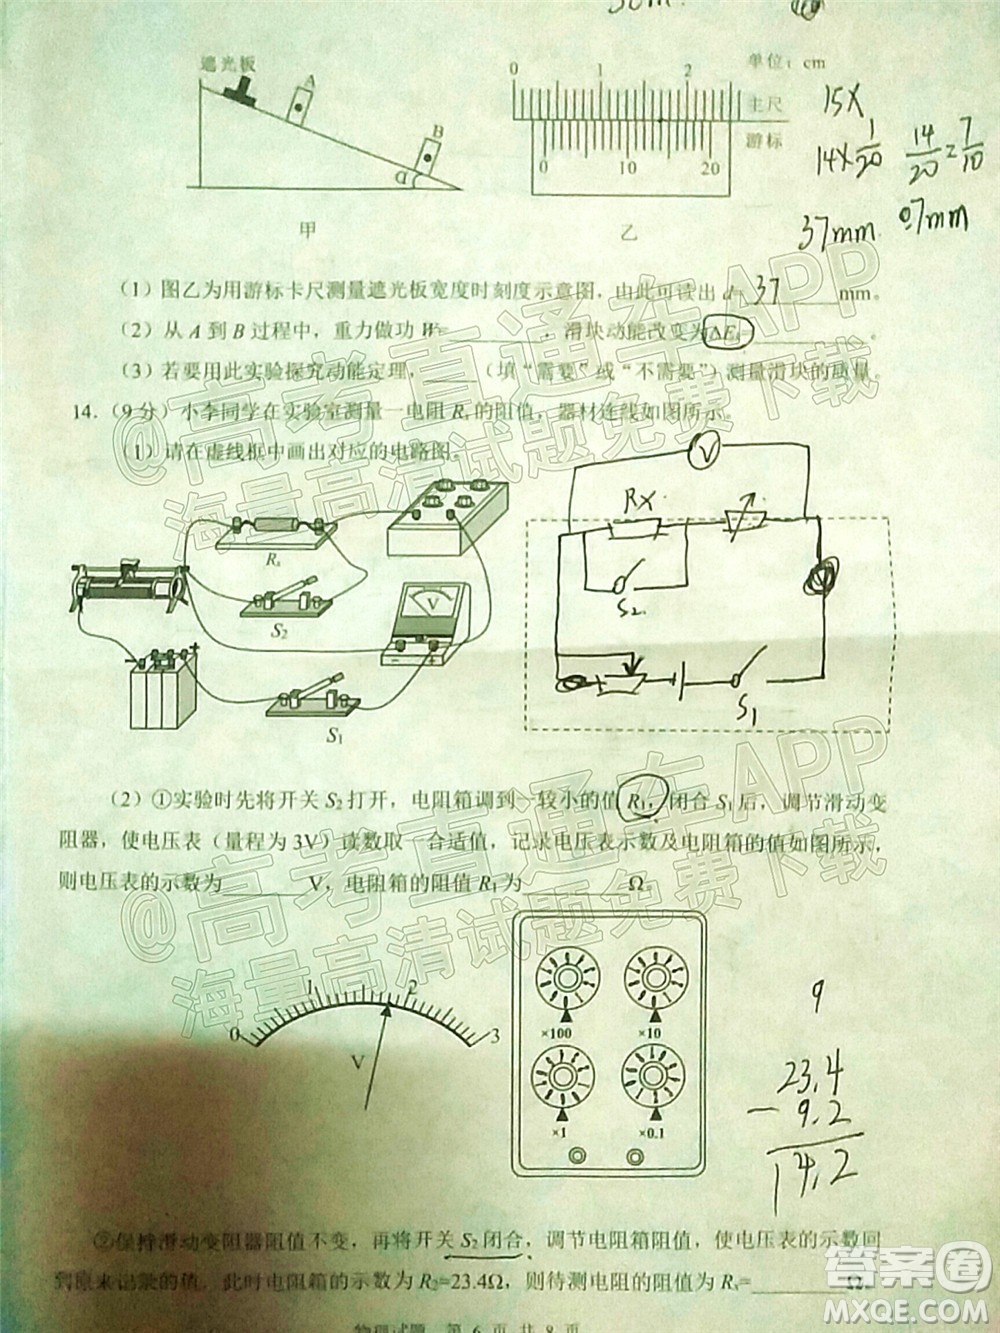 遮光板
A
B
α
甲
单位：cm
0 1 2
主尺
游标
0 10 20
乙
15X
14×1/20 14/20=7/10
37mm 0.7mm
（1）图乙为用游标卡尺测量遮光板宽度时刻度示意图，由此可读出 d= 37 mm。
（2）从 A 到 B 过程中，重力做功 W=________，滑块动能改变为ΔEk=________。
（3）若要用此实验探究动能定理，____（填“需要”或“不需要”）测量滑块的质量。
14．（9 分）小李同学在实验室测量一电阻 Rx 的阻值，器材连线如图所示。
（1）请在虚线框中画出对应的电路图。
Rx
S2
V
S1
V
RX
S2
S1
（2）①实验时先将开关 S2 打开，电阻箱调到一较小的值 R1，闭合 S1 后，调节滑动变
阻器，使电压表（量程为 3V）读数取一合适值，记录电压表示数及电阻箱的值如图所示，
则电压表的示数为________V，电阻箱的阻值 R1 为________Ω。
0 1 2 3
V
×100 ×10
×1 ×0.1
9
23.4
- 9.2
14.2
②保持滑动变阻器阻值不变，再将开关 S2 闭合，调节电阻箱阻值，使电压表的示数回
到原来记录的值，此时电阻箱的示数为 R2=23.4Ω，则待测电阻的阻值为 Rx=________Ω。
物理试题 第 6 页 共 8 页
@高考直通车APP
海量高清试题免费下载
@高考直通车APP
海量高清试题免费下载
答案圈
MXQE.COM